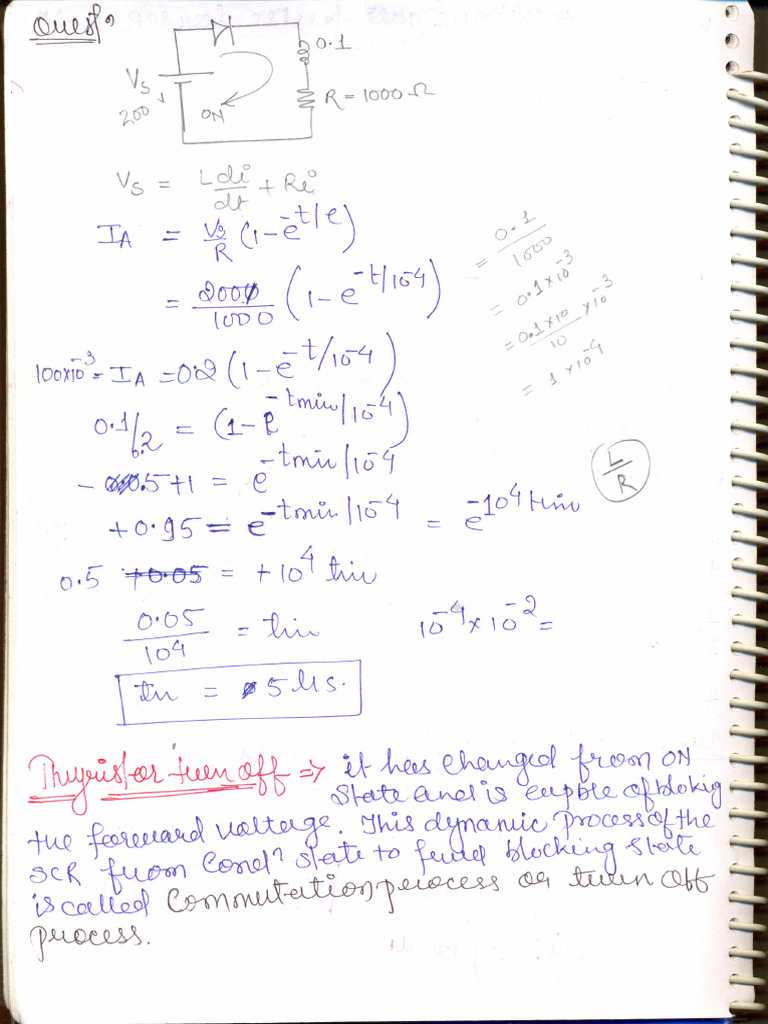 Quesn.
0.1
Vs
200 V
ON
R = 1000 Ω
Vs = L di/dt + Ri
IA = Vs/R (1 - e^-t/τ)
= 200/1000 (1 - e^-t/10^-4)
0.1/1000
= 0.1 × 10^-3
= 0.1×10/10 × 10^-3
= 1 × 10^-4
100×10^-3 = IA = 0.2 (1 - e^-t/10^-4)
0.1/0.2 = (1 - e^-tmin/10^-4)
- 0.5 + 1 = e^-tmin/10^-4
L/R
+ 0.95 = e^-tmin/10^-4 = e^-10^4 tmin
0.5 +0.05 = + 10^4 tmin
0.05/10^4 = tmin
10^-4 × 10^-2 =
tm = 5 μs.
Thyristor turn off ⇒ it has changed from ON
state and is cupble of blokig
the foreward voltage. This dynamic process of the
SCR from Condn state to forwd blocking state
is called Commutation process or turn off
process.